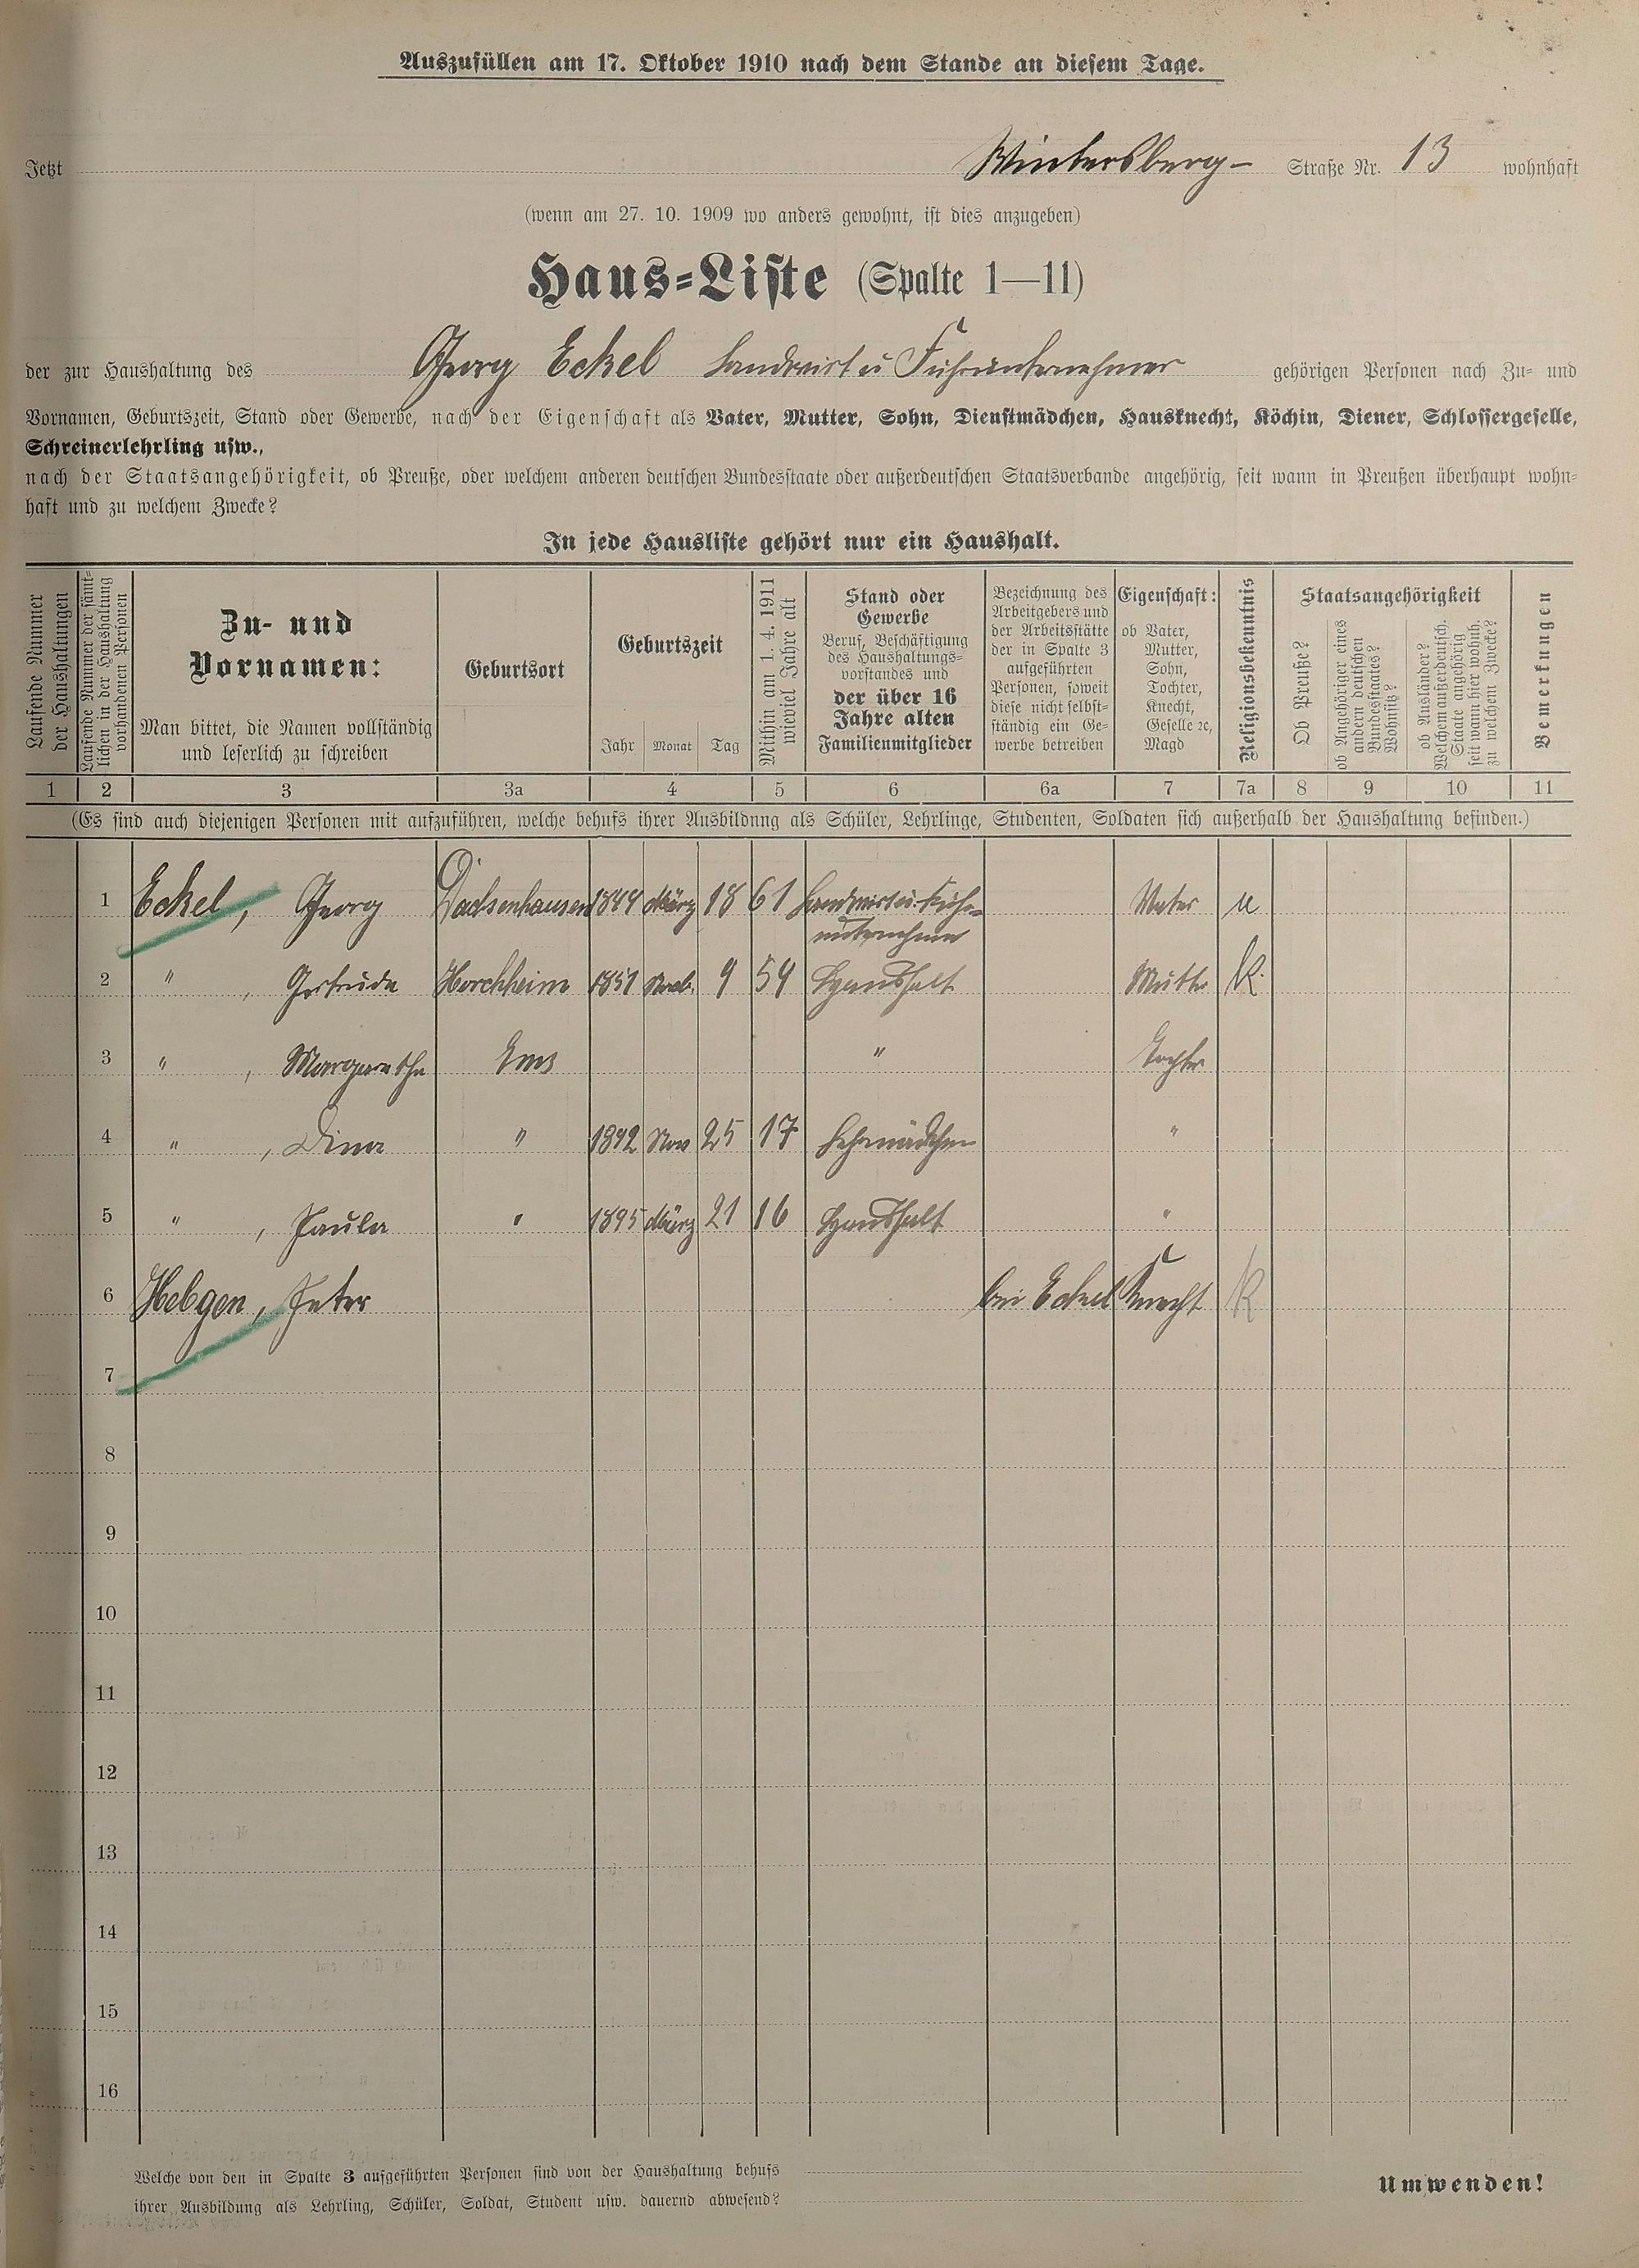 Auszufüllen am 17. Oktober 1910 nach dem Stande an diesem Tage.
Jetzt Wintersberg- Straße Nr. 13 wohnhaft
(wenn am 27. 10. 1909 wo anders gewohnt, ist dies anzugeben)
Haus-Liste (Spalte 1—11)
der zur Haushaltung des Georg Eckel Landwirt u Fuhrunternehmer gehörigen Personen nach Zu- und
Vornamen, Geburtszeit, Stand oder Gewerbe, nach der Eigenschaft als Vater, Mutter, Sohn, Dienstmädchen, Hausknecht, Köchin, Diener, Schlossergeselle,
Schreinerlehrling usw.,
nach der Staatsangehörigkeit, ob Preuße, oder welchem anderen deutschen Bundesstaate oder außerdeutschen Staatsverbande angehörig, seit wann in Preußen überhaupt wohn-
haft und zu welchem Zwecke?
In jede Hausliste gehört nur ein Haushalt.
Laufende Nummer der Haushaltungen
Laufende Nummer der sämt-
lichen in der Haushaltung
vorhandenen Personen
Zu- und
Vornamen:
Man bittet, die Namen vollständig
und leserlich zu schreiben
Geburtsort
Geburtszeit
Jahr Monat Tag
Mithin am 1. 4. 1911
wieviel Jahre alt
Stand oder
Gewerbe
Beruf, Beschäftigung
des Haushaltungs-
vorstandes und
der über 16
Jahre alten
Familienmitglieder
Bezeichnung des
Arbeitgebers und
der Arbeitsstätte
der in Spalte 3
aufgeführten
Personen, soweit
diese nicht selbst-
ständig ein Ge-
werbe betreiben
Eigenschaft:
ob Vater,
Mutter,
Sohn,
Tochter,
Knecht,
Geselle ꝛc,
Magd
Religionsbekenntnis
Staatsangehörigkeit
Ob Preuße?
ob Angehöriger eines
andern deutschen
Bundesstaates?
Wohnsitz?
ob Ausländer?
Welchem außerdeutsch.
Staate angehörig
seit wann hier wohnh.
zu welchem Zwecke?
Bemerkungen
1 2 3 3a 4 5 6 6a 7 7a 8 9 10 11
(Es sind auch diejenigen Personen mit aufzuführen, welche behufs ihrer Ausbildnng als Schüler, Lehrlinge, Studenten, Soldaten sich außerhalb der Haushaltung befinden.)
1 Eckel, Georg Dachsenhausen 1849 März 18 61 Landwirt u. Fuhr-
unternehmer Vater
2 " , Gertrude Horchheim 1851 9 59 Haushalt Mutter k.
3 " , Margarethe Ems " Tochter
4 " , Dina " 1892 Nov 25 17 Lehrmädchen "
5 " , Paula " 1895 März 21 16 Haushalt "
6 Hebgen, Peter bei Eckel Knecht k
7
8
9
10
11
12
13
14
15
16
Welche von den in Spalte 3 aufgeführten Personen sind von der Haushaltung behufs
ihrer Ausbildung als Lehrling, Schüler, Soldat, Student usw. dauernd abwesend?
Umwenden!